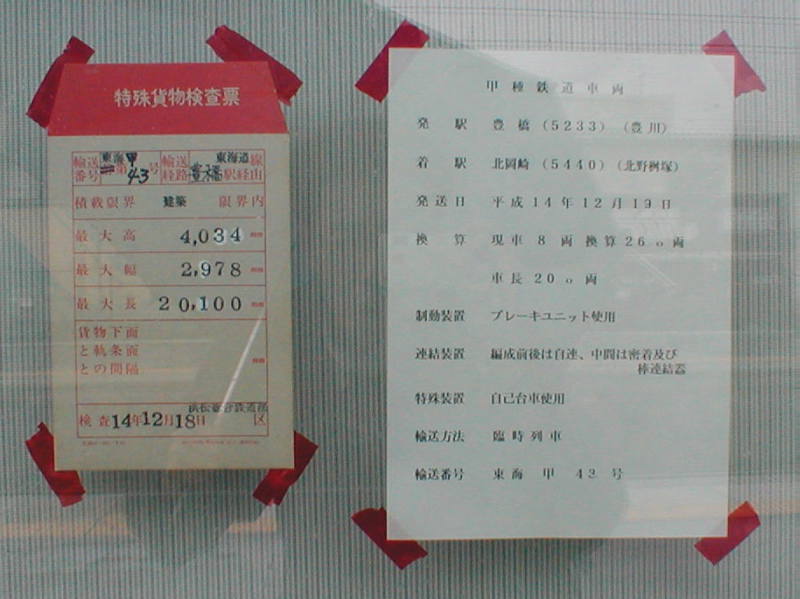 特殊貨物検査票
輸送番号 東海第甲43号 輸送経路 東海道線 豊橋駅経由
積載限界 建築 限界内
最大高 4,034 mm
最大幅 2,978 mm
最大長 20,100 mm
貨物下面
と軌条面
との間隔 mm
検査 14年12月18日 区
甲種鉄道車両
発駅 豊橋 (5233) (豊川)
着駅 北岡崎 (5440) (北野桝塚)
発送日 平成14年12月19日
換算 現車 8 両 換算 26.0 両
車長 20.0 両
制動装置 ブレーキユニット使用
連結装置 編成前後は自連、中間は密着及び
棒連結器
特殊装置 自己台車使用
輸送方法 臨時列車
輸送番号 東海 甲 43 号